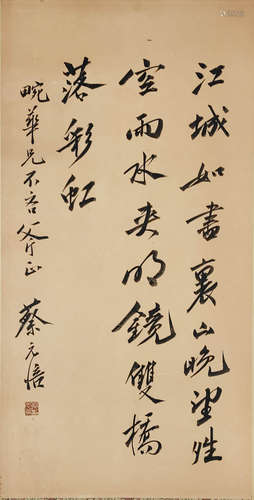 江城如畫裏山晚望晴
空雨水夾明鏡雙橋
落彩虹
畹華兄不吝斧正
蔡元培